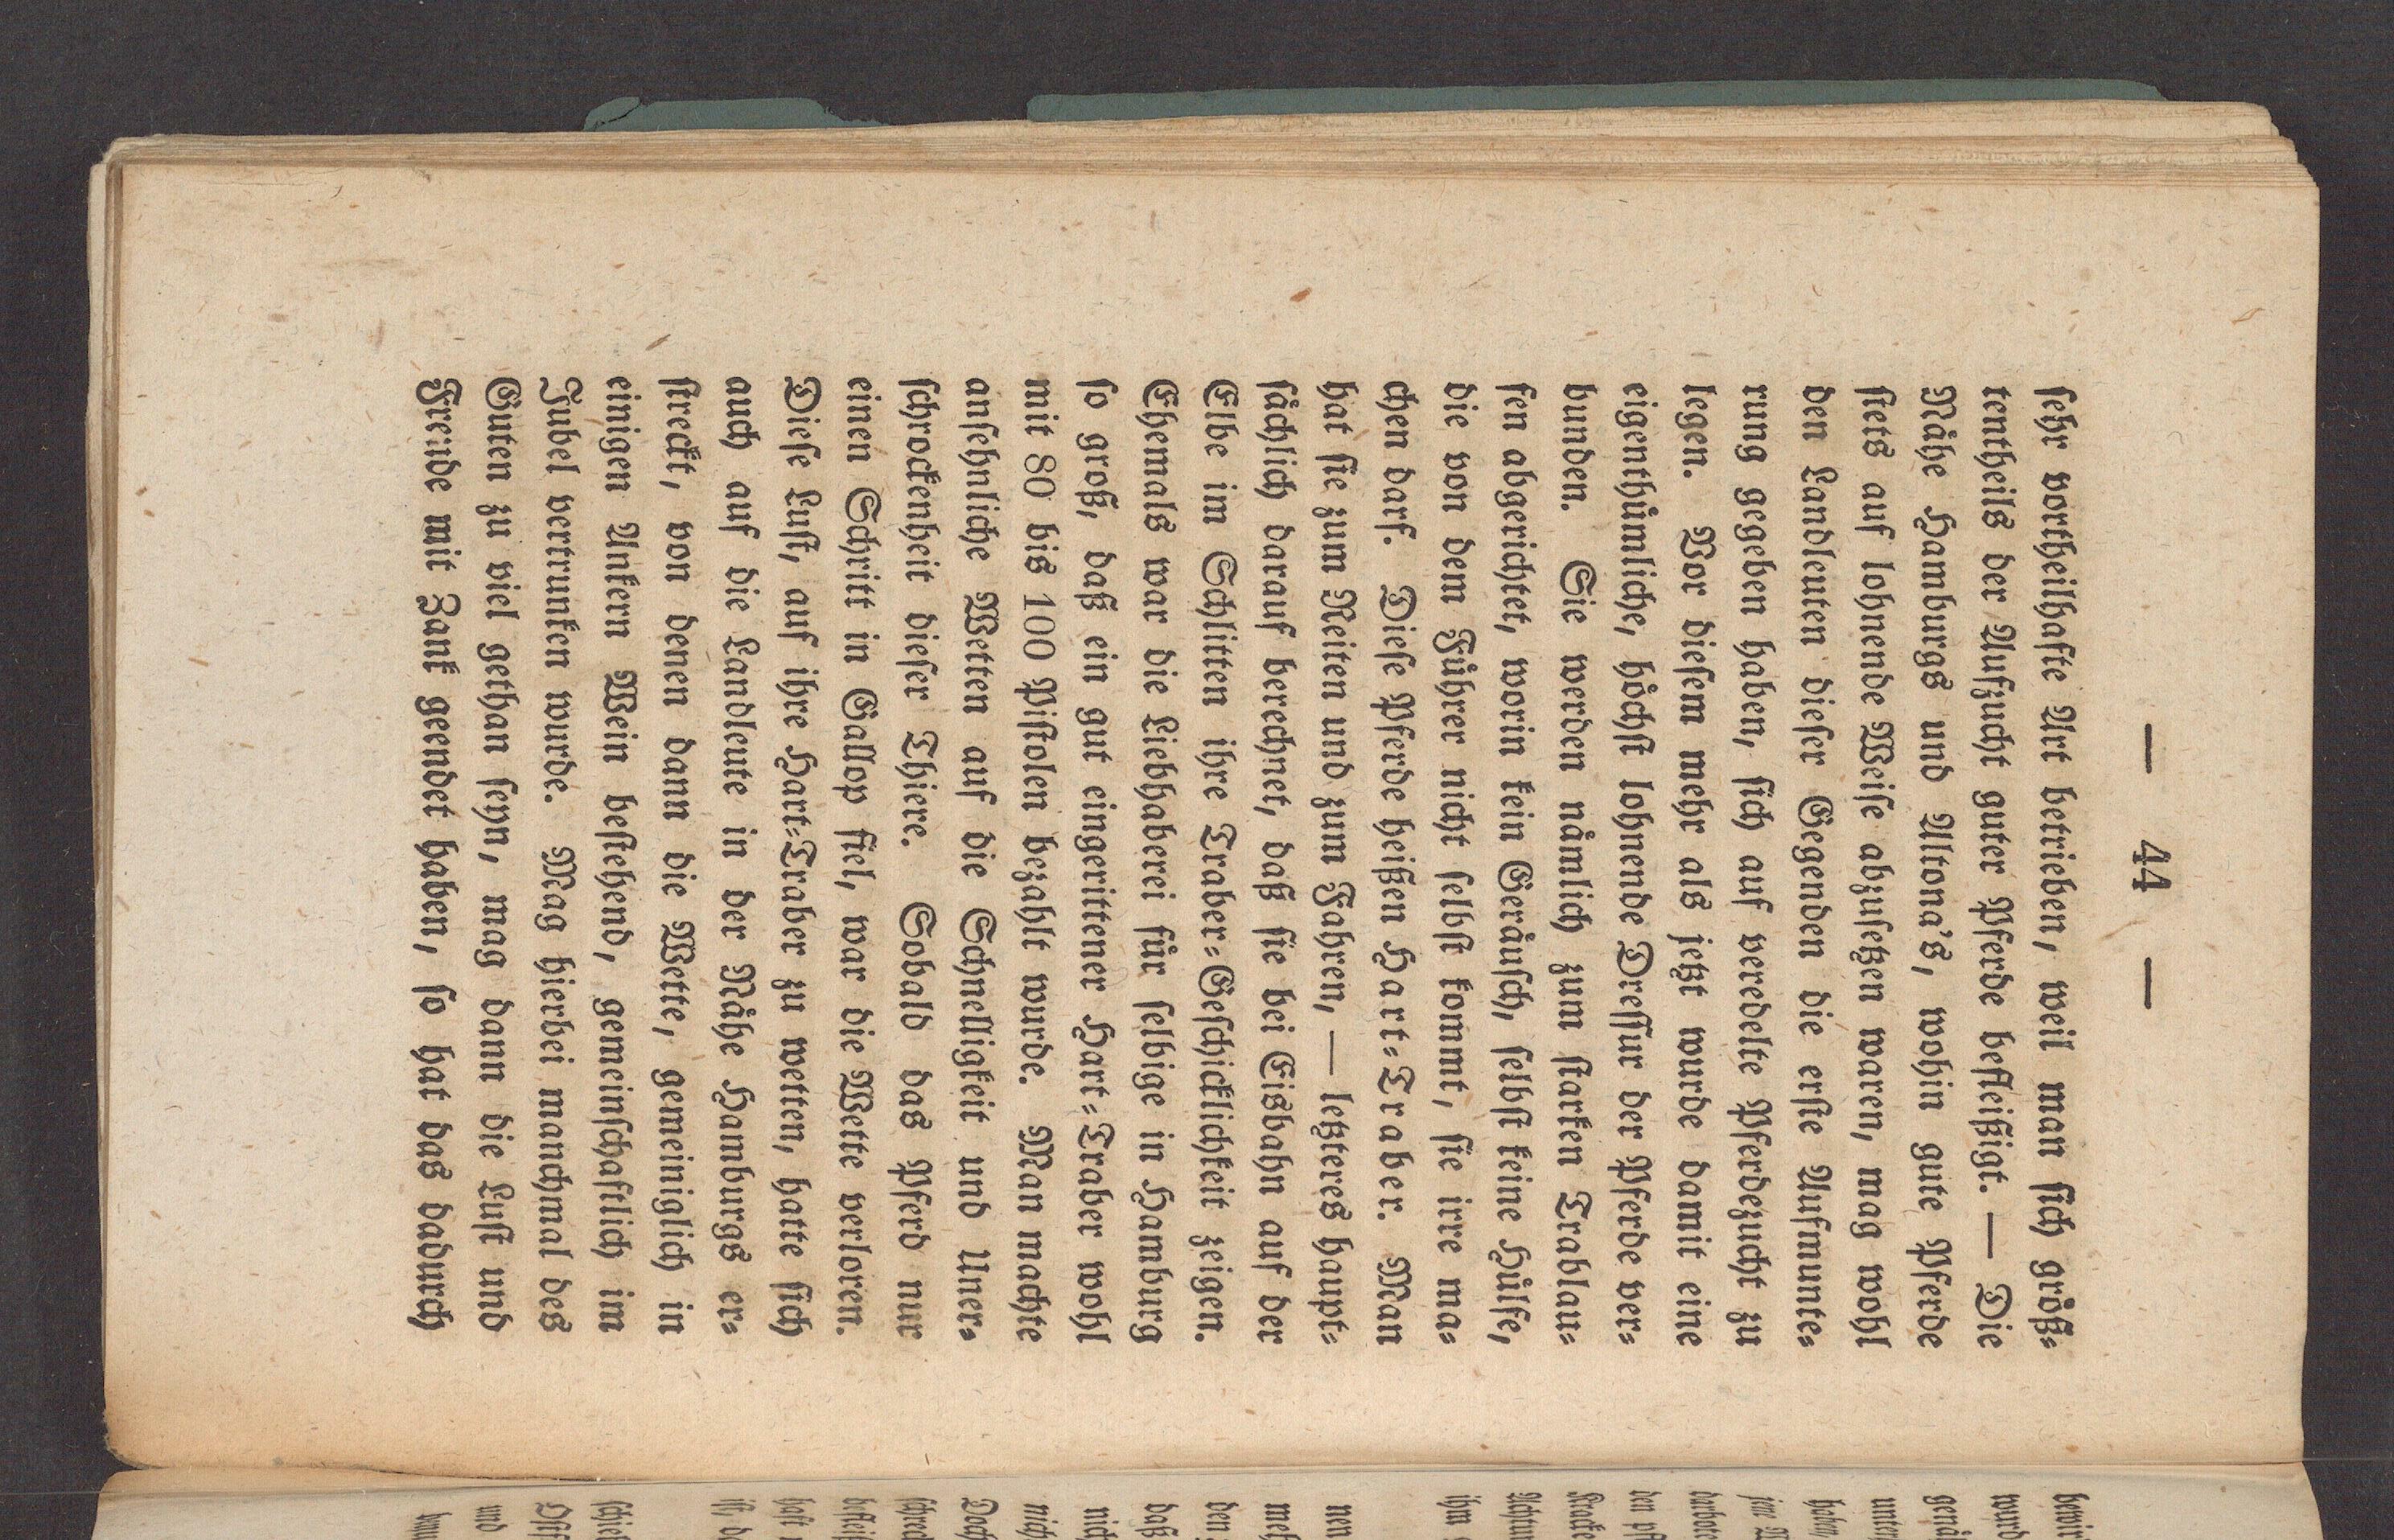 — 44 —
ſehr vortheilhafte Art betrieben, weil man ſich größ⸗
tentheils der Aufzucht guter Pferde befleißigt. — Die
Nähe Hamburgs und Altona's, wohin gute Pferde
ſtets auf lohnende Weiſe abzuſetzen waren, mag wohl
den Landleuten dieſer Gegenden die erſte Aufmunte⸗
rung gegeben haben, ſich auf veredelte Pferdezucht zu
legen. Vor dieſem mehr als jetzt wurde damit eine
eigenthümliche, höchſt lohnende Dreſſur der Pferde ver⸗
bunden. Sie werden nämlich zum ſtarken Trablau⸗
fen abgerichtet, worin kein Geräuſch, ſelbſt keine Hülfe,
die von dem Führer nicht ſelbſt kommt, ſie irre ma⸗
chen darf. Dieſe Pferde heißen Hart⸗Traber. Man
hat ſie zum Reiten und zum Fahren, — letzteres haupt⸗
ſächlich darauf berechnet, daß ſie bei Eisbahn auf der
Elbe im Schlitten ihre Traber⸗Geſchicklichkeit zeigen.
Ehemals war die Liebhaberei für ſelbige in Hamburg
ſo groß, daß ein gut eingerittener Hart⸗Traber wohl
mit 80 bis 100 Piſtolen bezahlt wurde. Man machte
anſehnliche Wetten auf die Schnelligkeit und Uner⸗
ſchrockenheit dieſer Thiere. Sobald das Pferd nur
einen Schritt in Gallop fiel, war die Wette verloren.
Dieſe Luſt, auf ihre Hart⸗Traber zu wetten, hatte ſich
auch auf die Landleute in der Nähe Hamburgs er⸗
ſtreckt, von denen dann die Wette, gemeiniglich in
einigen Ankern Wein beſtehend, gemeinſchaftlich im
Jubel vertrunken wurde. Mag hierbei manchmal des
Guten zu viel gethan ſeyn, mag dann die Luſt und
Freude mit Zank geendet haben, ſo hat das dadurch